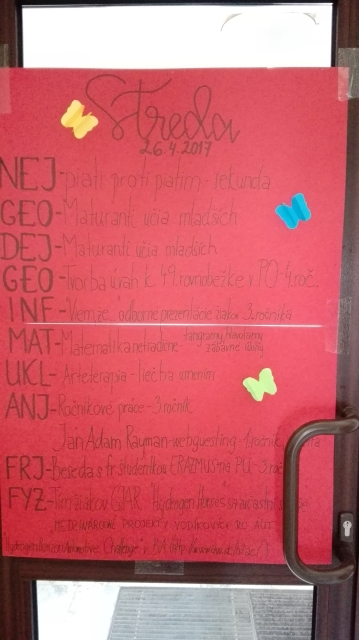 Streda
26.4.2017
NEJ-piati proti piatim - sekunda
GEO-Maturanti učia mladších
DEJ-Maturanti učia mladších
GEO-Tvorba úrah k 49.rovnobežke v PO-4.roč.
INF-Viem že odborne prezentácie žiakov 3.ročníka
MAT-Matematika netradične- tangramy, hlavolamy
zábavné úlohy
UKL-Arteterapia - liečba umením
ANJ-Ročníkové práce - 3.ročník
Ján Adam Rayman-webquesting - 1.ročník
FRJ-Beseda s fr. študentkou ERASMUS na PU - 3.roč
FYZ-Tím žiakov GJAR Hydrogen Horses
MEDZINÁRODNÉ PROJEKTY VODÍKOVÝCH RC ÁUT
Challenge